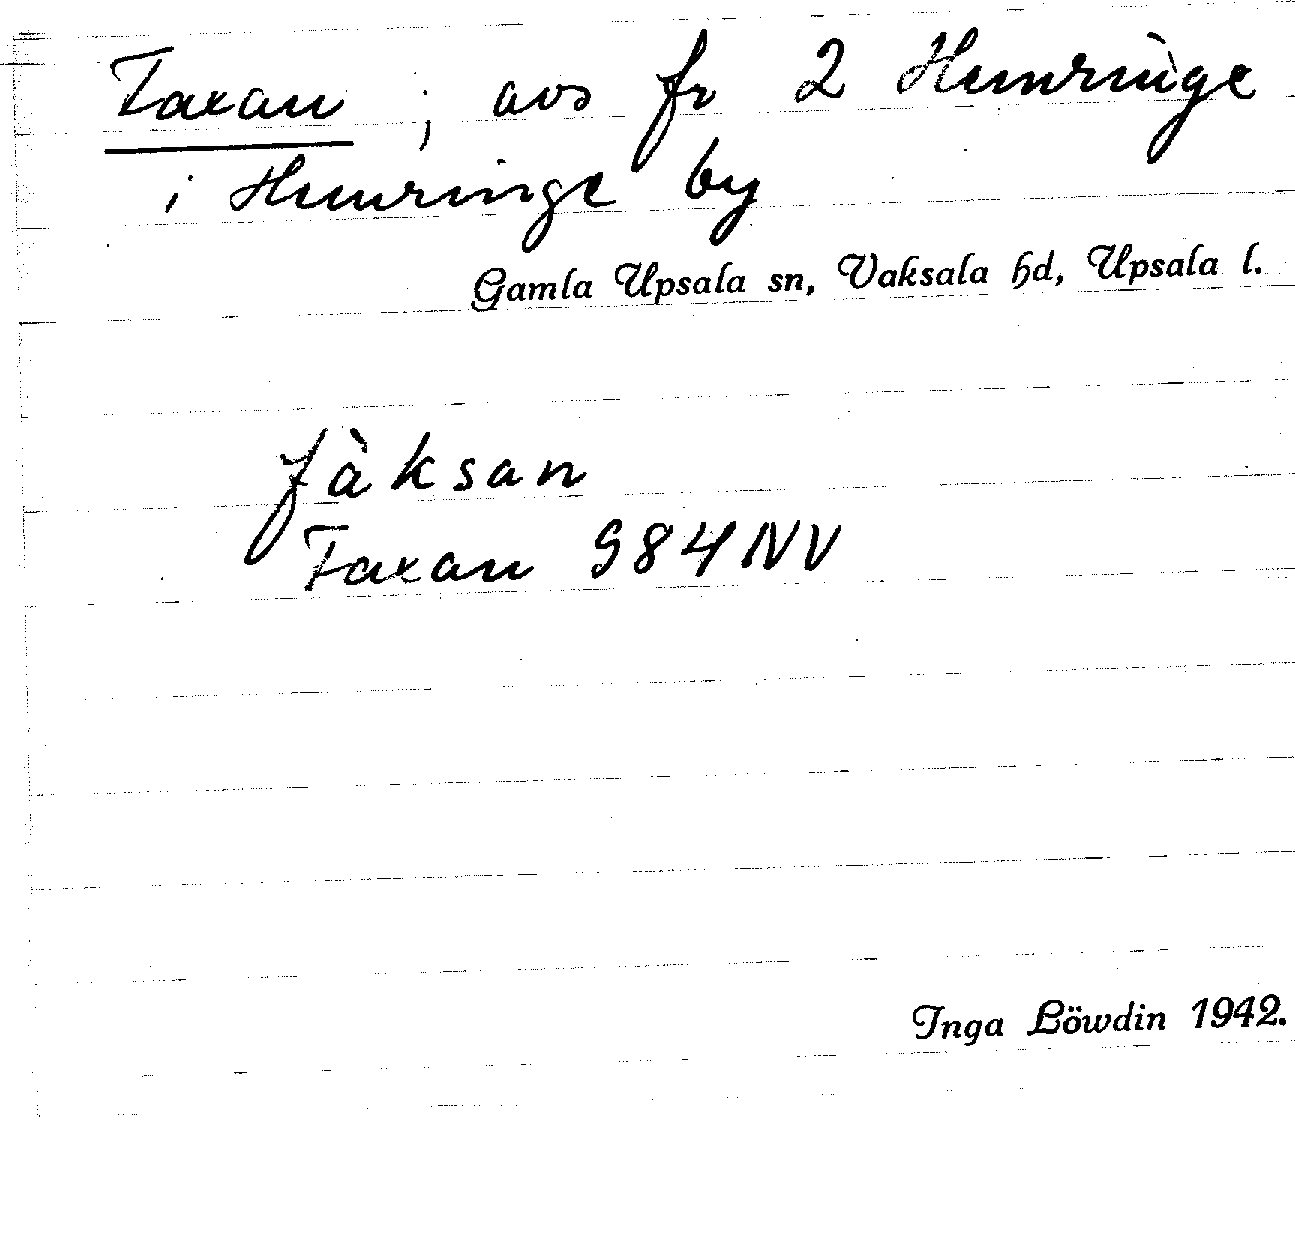 Faxan ; avs fr 2 Hemringe
i Hemringe by
Gamla Upsala sn, Vaksala hd, Upsala l.
fàksan
Faxan 984 NV
Inga Löwdin 1942.